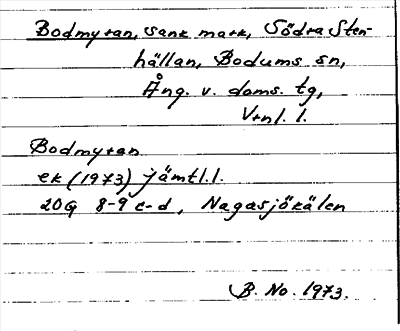 Bodmyran, sank mark, Södra Sten-
hällan, Bodums sn,
Ång. v. doms. tg,
Vtnl. l.
Bodmyran
ek (1973) jämtl. l.
20G 8-9 c-d, Nagasjökälen
B. No. 1973.